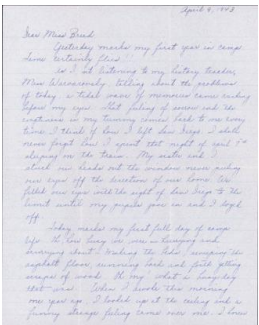 April 6, 1943
Dear Miss Breed,
Yesterday marks my first year in camp
Time certainly flies!!
As I sat listening to my history teacher,
Miss telling about the problems
of today a tidal wave of memories came rushing
before my eyes. That feeling of sorrow and the
emptiness in my tummy comes back to me every
time I think of how I left San Diego. I shall
never forget how I spent that night of
sleeping on the train. My sister and I
stuck our heads out the window never taking
our eyes off the direction of our home. We
filled our eyes with the sight of San Diego to the
limit until my pupils gave in and I dozed
off.
Today marks my first full day of camp
life. Oh, how busy we were
scurrying about! Making the beds, sweeping the
asphalt floor, running back and forth getting
scraps of wood. Oh my! what a busy day
that was. When I awoke this morning
one year ago, I looked up at the ceiling and a
funny strange feeling came over me. I knew